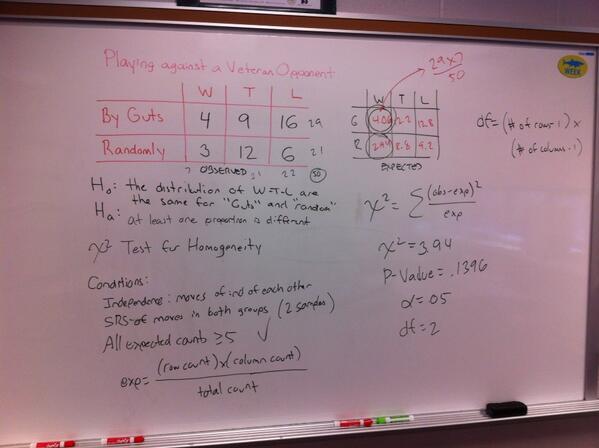 Playing against a Veteran Opponent
W T L
By Guts 4 9 16 29
Randomly 3 12 6 21
7 OBSERVED 21 22 50
29x7
50
W T L
G 4.06 12.2 12.8
R 2.94 8.8 9.2
EXPECTED
df = (# of rows - 1) x
(# of columns - 1)
Ho: the distribution of W-T-L are
the same for "Guts" and "random"
Ha: at least one proportion is different
χ² Test for Homogeneity
Conditions:
Independence: moves of ind of each other
SRS-of moves in both groups (2 samples)
All expected counts ≥5 ✓
exp = (row count)x(column count)
total count
χ² = Σ (obs-exp)²
exp
χ² = 3.94
P-Value = .1396
α = .05
df = 2
WEEK